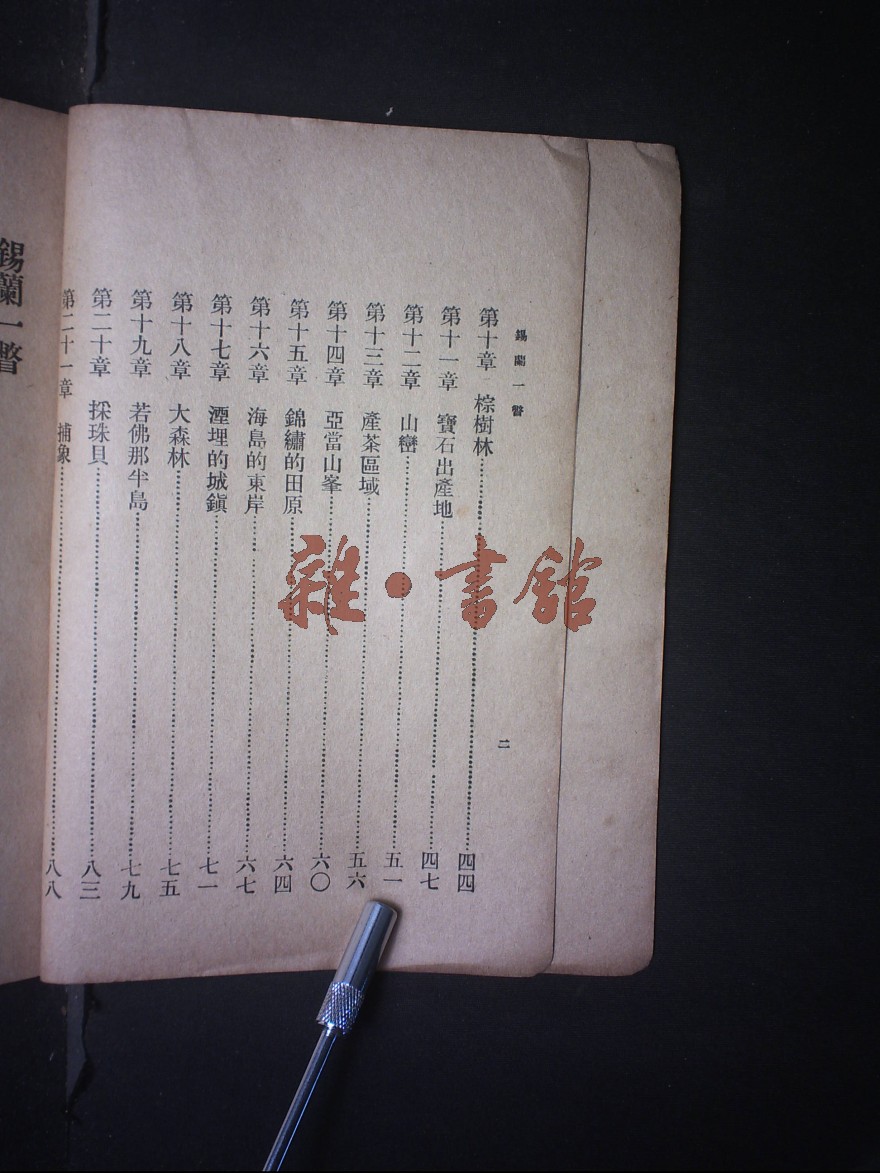 錫蘭一瞥
二
第十章 棕樹林 四四
第十一章 寶石出產地 四七
第十二章 山巒 五一
第十三章 產茶區域 五六
第十四章 亞當山峯 六〇
第十五章 錦繡的田原 六四
第十六章 海島的東岸 六七
第十七章 湮埋的城鎭 七一
第十八章 大森林 七五
第十九章 若佛那半島 七九
第二十章 採珠貝 八三
第二十一章 捕象 八八
錫蘭一瞥
雜·書館